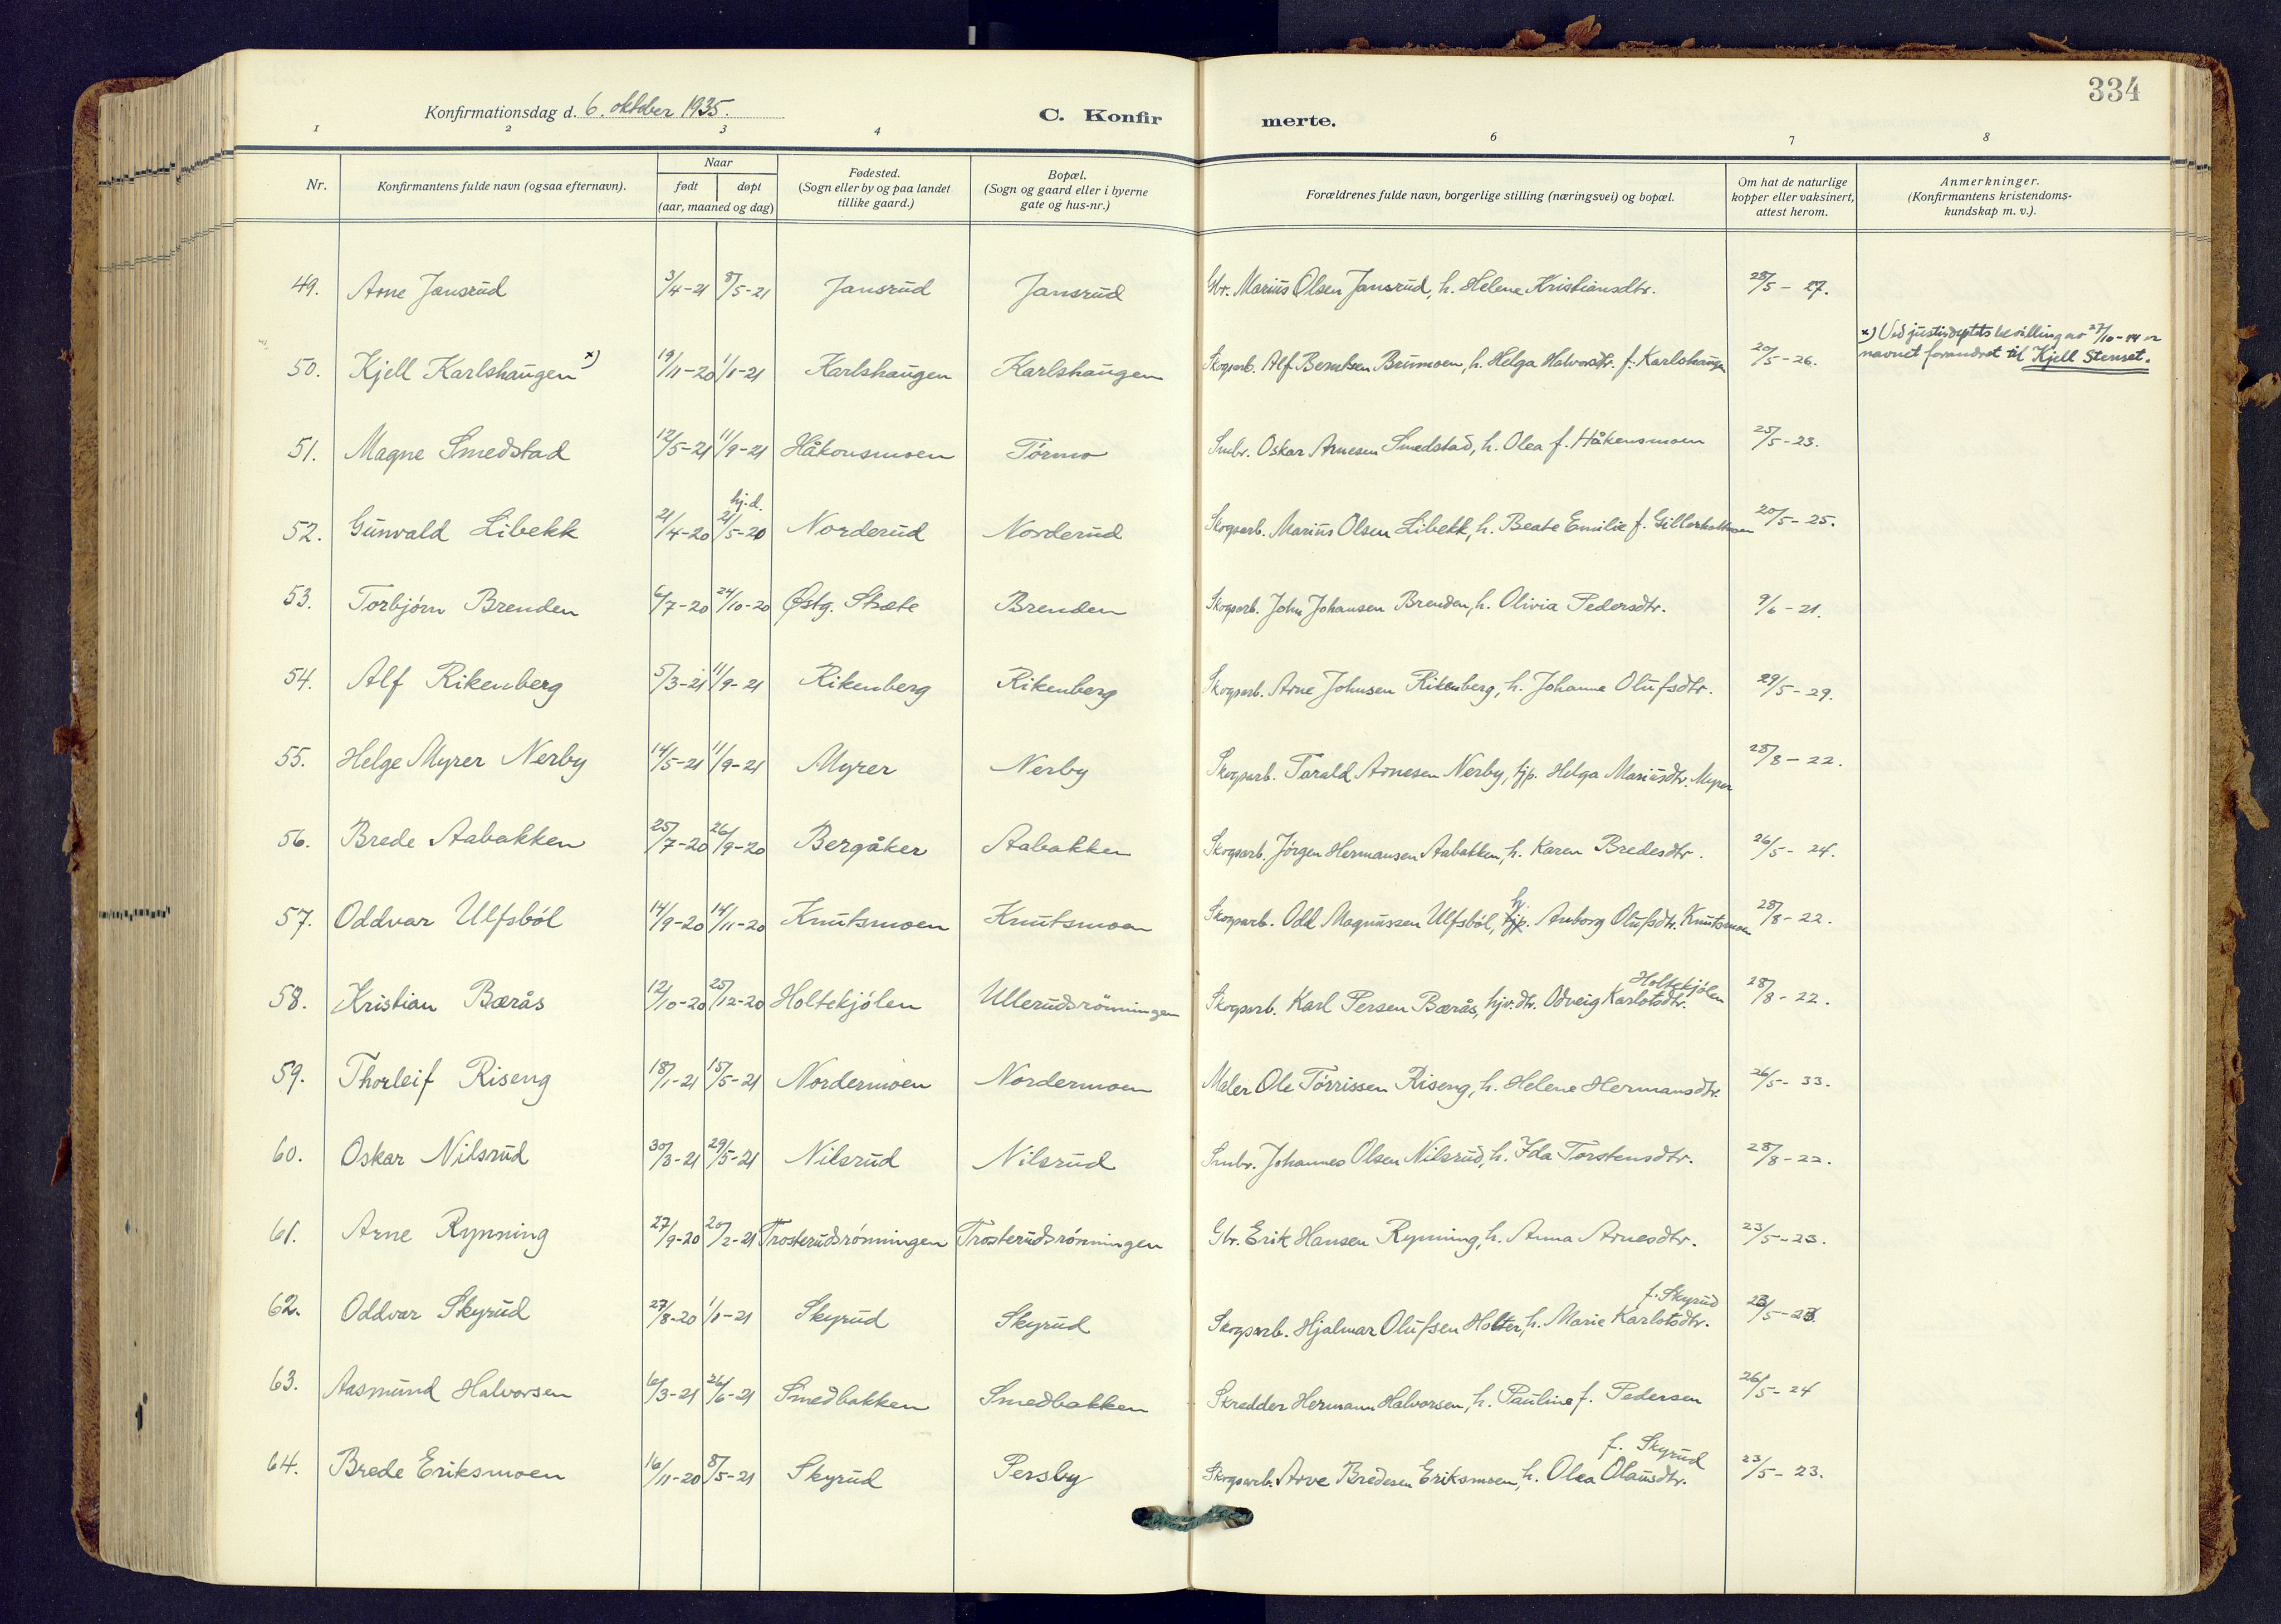 334
Konfirmationsdag d. 6. oktober 1935.
C. Konfirmerte.
1 2 3 4 6 7 8
Nr.
Konfirmantens fulde navn (ogsaa efternavn).
Naar
født døpt
(aar, maaned og dag)
Fødested.
(Sogn eller by og paa landet
tillike gaard.)
Bopæl.
(Sogn og gaard eller i byerne
gate og hus-nr.)
Forældrenes fulde navn, borgerlige stilling (næringsvei) og bopæl.
Om hat de naturlige
kopper eller vaksinert,
attest herom.
Anmerkninger.
(Konfirmantens kristendoms-
kundskap m. v.).
49. Arne Jansrud 3/4-21 8/5-21 Jansrud Jansrud Gbr. Marius Olsen Jansrud, h. Helene Kristiansdtr. 28/5-27.
50. Kjell Karlshaugen x) 19/11-20 1/1-21 Karlshaugen Karlshaugen Skogarb. Alf Berntsen Brumoen, h. Helga Halvorsdtr. f. Karlshaugen 20/5-26.
x) Ved justisdeptets bevilling av 27/10-44 er
navnet forandret til Kjell Stenset.
51. Magne Smedstad 12/5-21 11/9-21 Håkonsmoen Tórmo Smbr. Oskar Arnesen Smedstad, h. Olea f. Håkensmoen 25/5-23.
52. Gunvald Libekk 21/4-20 hj.d. 21/5-20 Norderud Norderud Skogsarb. Marius Olsen Libekk, h. Beate Emilie f. Gillerholtmoen 20/5-25.
53. Torbjórn Brenden 6/7-20 24/10-20 Østg. Stræte Brenden Skogsarb. John Johansen Brenden, h. Olivia Pedersdtr. 9/6-21.
54. Alf Rikenberg 5/3-21 11/9-21 Rikenberg Rikenberg Skogsarb. Arne Johnsen Rikenberg, h. Johanne Olufsdtr. 29/5-29.
55. Helge Myrer Nerby 14/5-21 11/9-21 Myrer Nerby Skogsarb. Tarald Arnesen Nerby, tjp. Helga Mariusdtr. Myrer 28/8-22.
56. Brede Aabakken 25/7-20 26/9-20 Bergåker Aabakken Skogsarb. Jórgen Hermansen Aabakken, h. Karen Bredesdtr. 26/5-24.
57. Oddvar Ulfsból 14/9-20 14/11-20 Knutsmoen Knutsmoen Skogsarb. Odd Magnussen Ulfsból, tjp. Anborg Olufsdtr. Knutsmoen 28/8-22.
58. Kristian Bærås 12/10-20 25/12-20 Holtekjólen Ullerudsrónningen Skogsarb. Karl Persen Bærås, hjv.dtr. Odveig Karlotsdtr. Holtekjólen 28/8-22.
59. Thorleif Riseng 18/1-21 15/5-21 Nordermoen Nordermoen Maler Ole Tórrissen Riseng, h. Helene Hermansdtr. 26/5-33.
60. Oskar Nilsrud 30/3-21 29/5-21 Nilsrud Nilsrud Smbr. Johannes Olsen Nilsrud, h. Ida Torstensdtr. 28/8-22.
61. Arne Rynning 27/9-20 20/2-21 Trosterudsrónningen Trosterudsrónningen Gbr. Erik Hansen Rynning, h. Anna Arnesdtr. 23/5-23.
62. Oddvar Skyrud 27/8-20 1/1-21 Skyrud Skyrud Skogsarb. Hjalmar Olufsen Holter, h. Marie Karlotsdtr. f. Skyrud 23/5-23
63. Aasmund Halvorsen 6/3-21 26/6-21 Smedbakken Smedbakken Skredder Hermann Halvorsen, h. Pauline f. Pedersen 26/5-24
64. Brede Eriksmoen 16/11-20 8/5-21 Skyrud Persby Skogsarb. Arve Bredesen Eriksmoen, h. Olea Olausdtr. f. Skyrud 23/5-23.